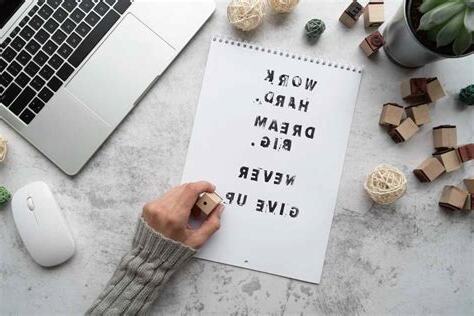 WORK
HARD.
DREAM
BIG.
NEVER
GIVE UP